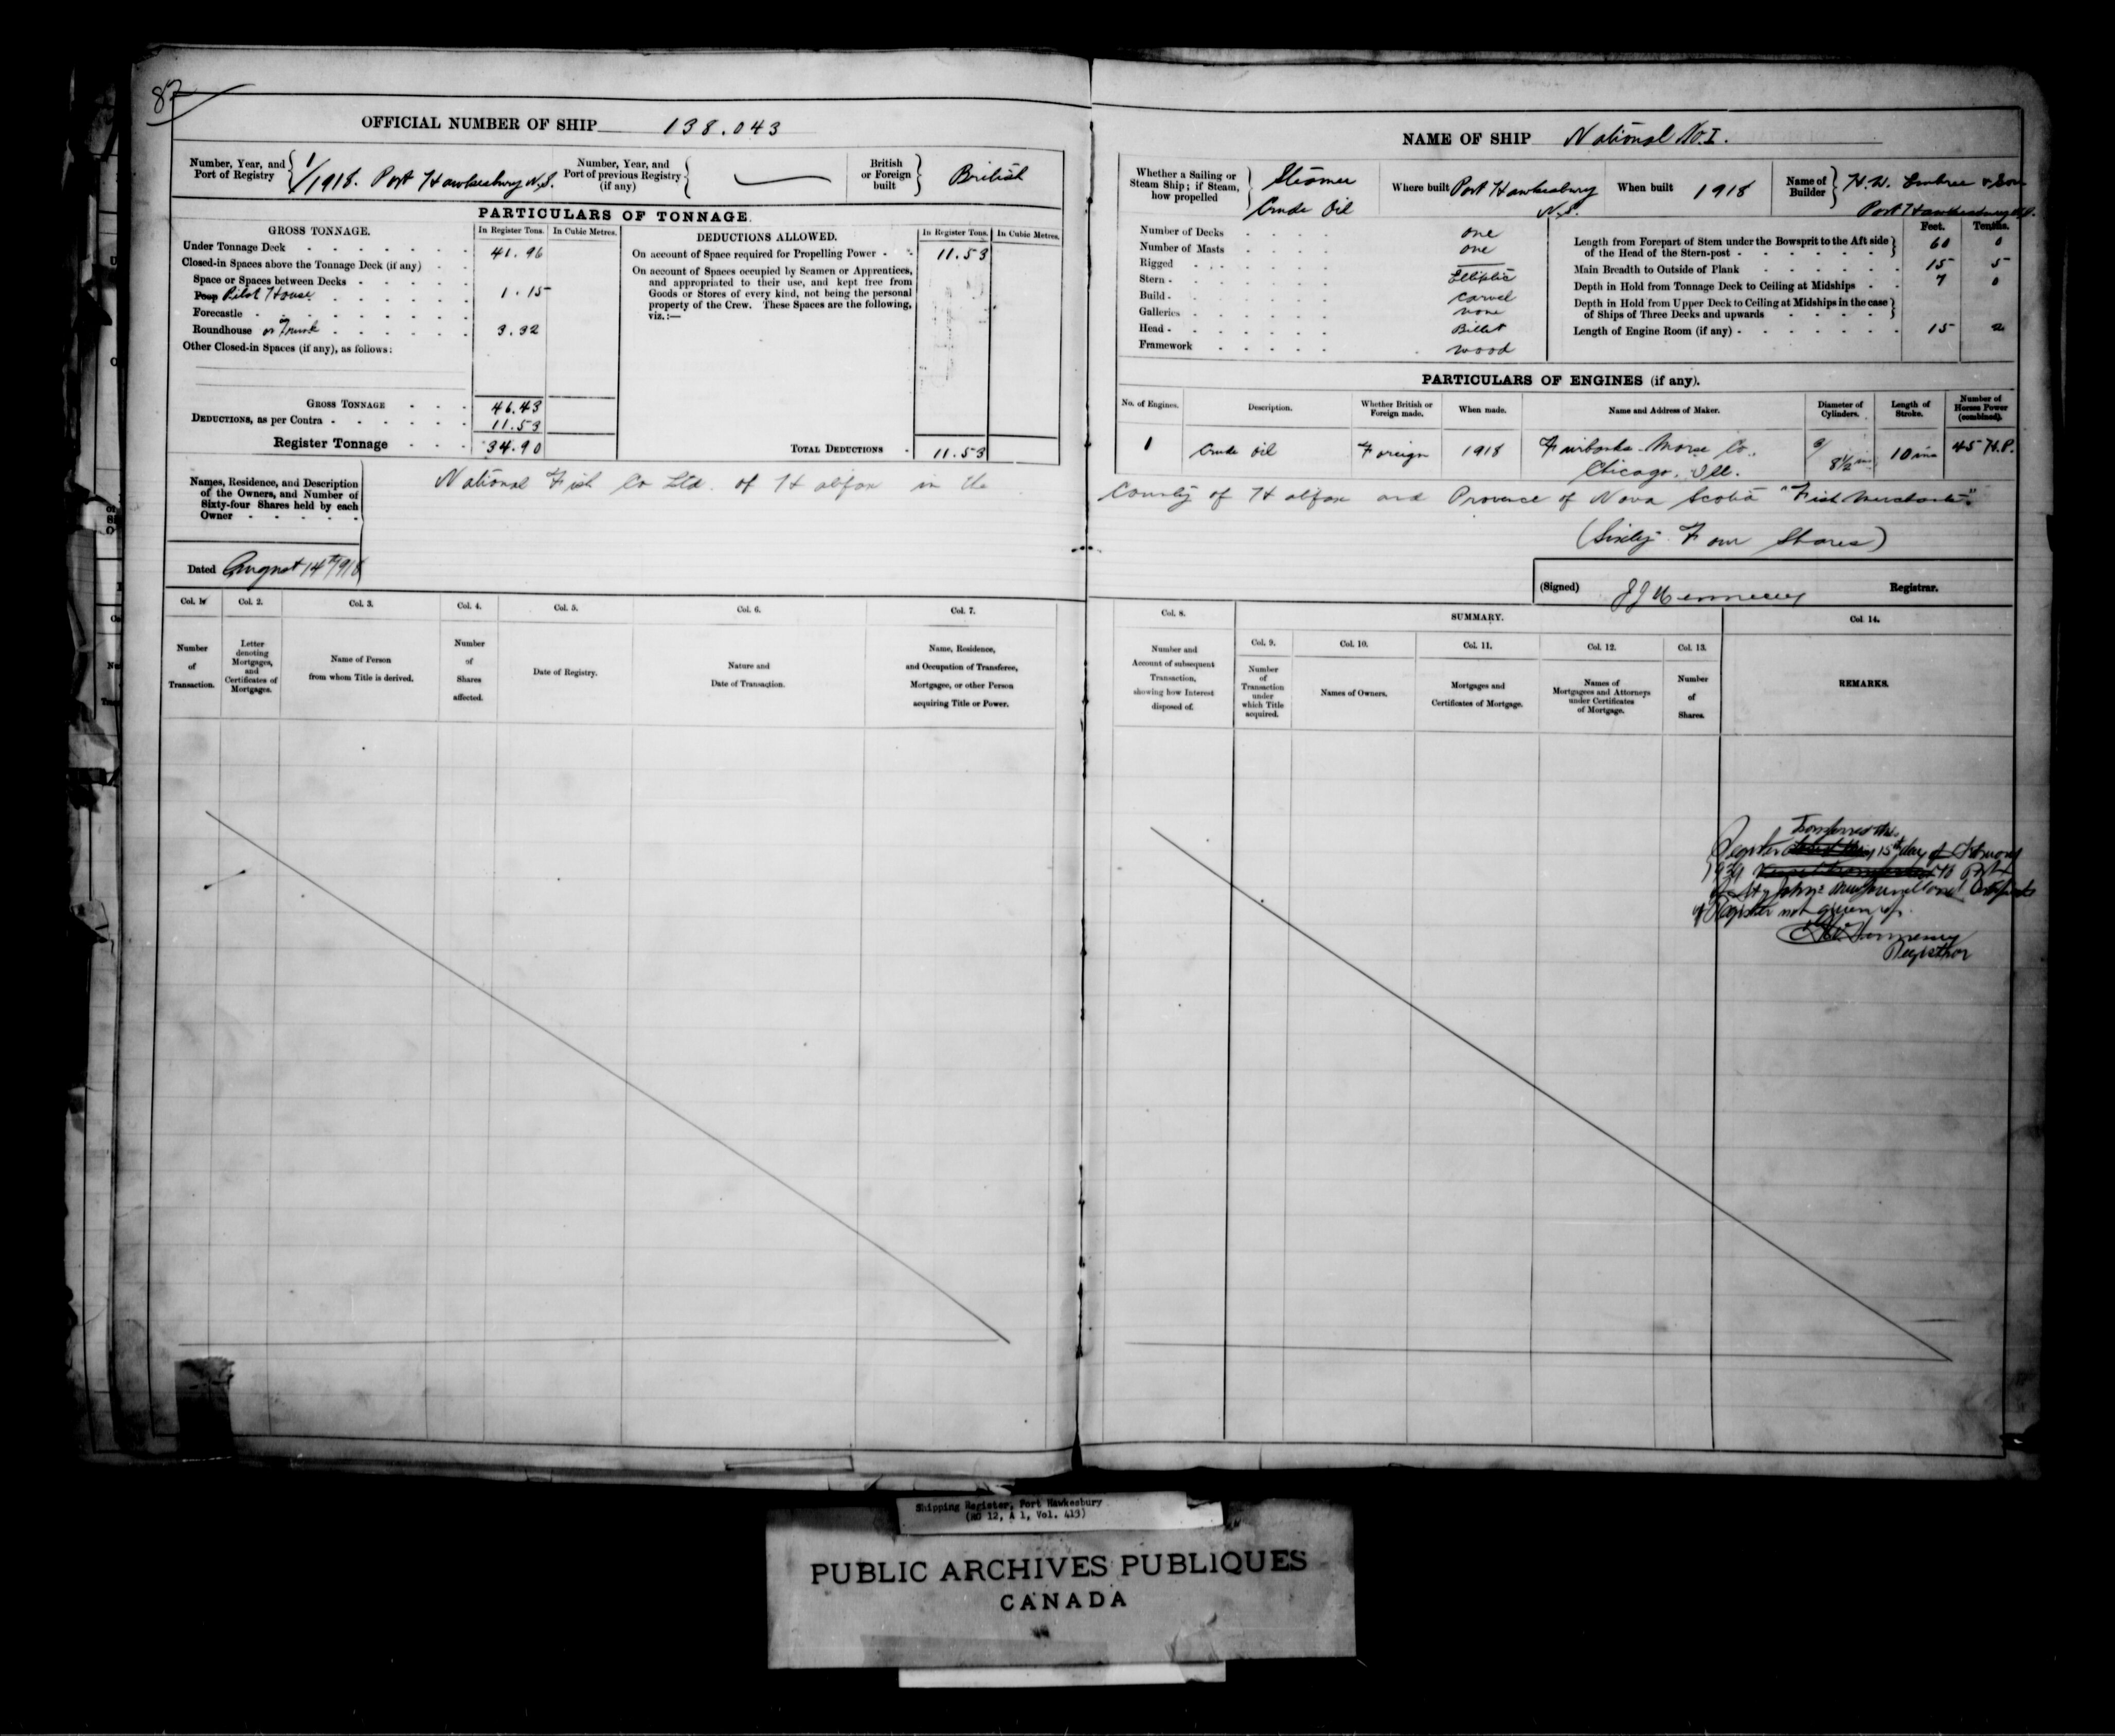 87
OFFICIAL NUMBER OF SHIP 138.043
Number, Year, and Port of Registry 1/1918. Port Hawkesbury N.S.
Number, Year, and Port of previous Registry (if any)
British or Foreign built British
PARTICULARS OF TONNAGE.
GROSS TONNAGE. In Register Tons. In Cubic Metres.
Under Tonnage Deck 41.96
Closed-in Spaces above the Tonnage Deck (if any)
Space or Spaces between Decks
Poop Pilot House 1.15
Forecastle
Roundhouse or Trunk 3.32
Other Closed-in Spaces (if any), as follows:
GROSS TONNAGE 46.43
DEDUCTIONS, as per Contra 11.53
Register Tonnage 34.90
DEDUCTIONS ALLOWED. In Register Tons. In Cubic Metres.
On account of Space required for Propelling Power 11.53
On account of Spaces occupied by Seamen or Apprentices,
and appropriated to their use, and kept free from
Goods or Stores of every kind, not being the personal
property of the Crew. These Spaces are the following,
viz.:—
TOTAL DEDUCTIONS 11.53
Names, Residence, and Description
of the Owners, and Number of
Sixty-four Shares held by each
Owner
National Fish Co Ltd. of Halifax in the
Dated August 14th 1918
Col. 1. Col. 2. Col. 3. Col. 4. Col. 5. Col. 6. Col. 7.
Number of Transaction.
Letter denoting Mortgages, and Certificates of Mortgages.
Name of Person from whom Title is derived.
Number of Shares affected.
Date of Registry.
Nature and Date of Transaction.
Name, Residence, and Occupation of Transferee, Mortgagee, or other Person acquiring Title or Power.
NAME OF SHIP National No. I.
Whether a Sailing or Steam Ship; if Steam, how propelled Steamer Crude Oil
Where built Port Hawkesbury N.S.
When built 1918
Name of Builder H.W. Embree & Son Port Hawkesbury N.S.
Number of Decks one
Number of Masts one
Rigged
Stern Elliptic
Build carvel
Galleries none
Head Billet
Framework wood
Feet. Tenths.
Length from Forepart of Stem under the Bowsprit to the Aft side of the Head of the Stern-post 60 0
Main Breadth to Outside of Plank 15 5
Depth in Hold from Tonnage Deck to Ceiling at Midships 7 0
Depth in Hold from Upper Deck to Ceiling at Midships in the case of Ships of Three Decks and upwards
Length of Engine Room (if any) 15 2
PARTICULARS OF ENGINES (if any).
No. of Engines. Description. Whether British or Foreign made. When made. Name and Address of Maker. Diameter of Cylinders. Length of Stroke. Number of Horse Power (combined).
1 Crude Oil Foreign 1918 Fairbanks-Morse Co., Chicago, Ill. 8½ ins 10 ins 45 H.P.
County of Halifax and Province of Nova Scotia "Fish Merchants"
(Sixty Four Shares)
(Signed) Registrar.
Col. 8. SUMMARY. Col. 14.
Col. 9. Col. 10. Col. 11. Col. 12. Col. 13.
Number and Account of subsequent Transaction, showing how Interest disposed of.
Number of Transaction under which Title acquired.
Names of Owners.
Mortgages and Certificates of Mortgage.
Names of Mortgagees and Attorneys under Certificates of Mortgage.
Number of Shares.
REMARKS.
Transferred this
Register 15th day of
to Port
of St John's Newfoundland Certificate
of Register not given up.
Registrar
Shipping Register, Port Hawkesbury
(RG 12, A 1, Vol. 413)
PUBLIC ARCHIVES PUBLIQUES
CANADA